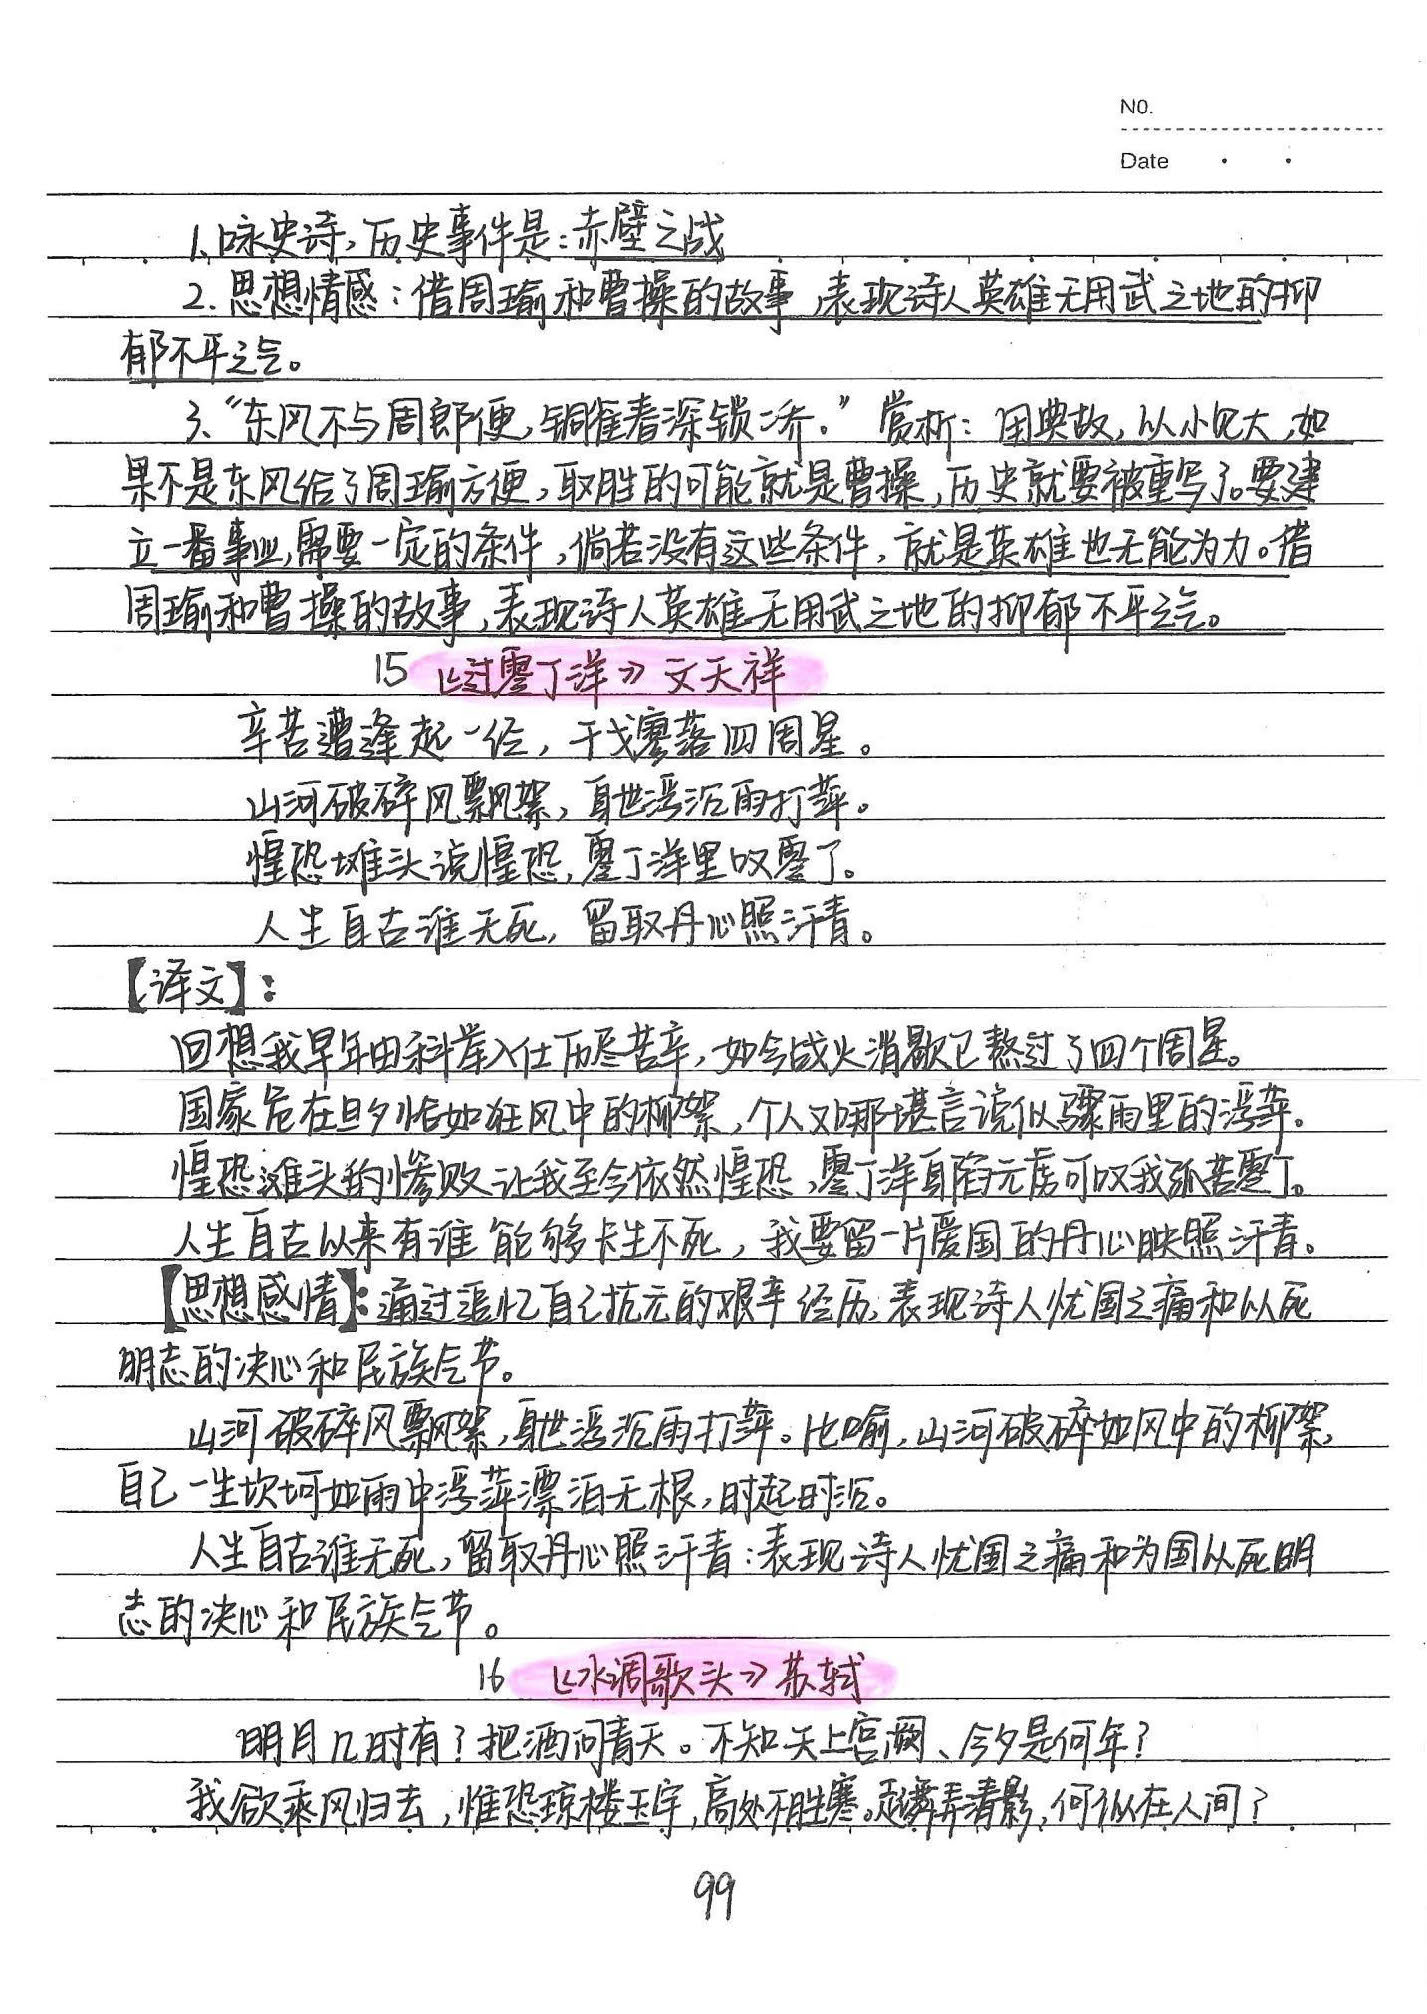 NO.
Date
1、咏史诗,历史事件是:赤壁之战
2.思想情感:借周瑜和曹操的故事,表现诗人英雄无用武之地的抑
郁不平之气。
3、“东风不与周郎便,铜雀春深锁二乔。”赏析:用典故,以小见大,如
果不是东风给了周瑜方便,取胜的可能就是曹操,历史就要被重写了。要建
立一番事业,需要一定的条件,倘若没有这些条件,就是英雄也无能为力。借
周瑜和曹操的故事,表现诗人英雄无用武之地的抑郁不平之气。
15 《过零丁洋》文天祥
辛苦遭逢起一经,干戈寥落四周星。
山河破碎风飘絮,身世浮沉雨打萍。
惶恐滩头说惶恐,零丁洋里叹零丁。
人生自古谁无死,留取丹心照汗青。
【译文】:
回想我早年由科举入仕历尽苦辛,如今战火消歇已熬过了四个周星。
国家危在旦夕恰如狂风中的柳絮,个人又哪堪言说似骤雨里的浮萍。
惶恐滩头的惨败让我至今依然惶恐,零丁洋身陷元虏可叹我孤苦零丁。
人生自古以来有谁能够长生不死,我要留一片爱国的丹心映照汗青。
【思想感情】:通过追忆自己抗元的艰辛经历,表现诗人忧国之痛和以死
明志的决心和民族气节。
山河破碎风飘絮,身世浮沉雨打萍。比喻,山河破碎如风中的柳絮,
自己一生坎坷如雨中浮萍漂泊无根,时起时沉。
人生自古谁无死,留取丹心照汗青:表现诗人忧国之痛和为国以死明
志的决心和民族气节。
16 《水调歌头》苏轼
明月几时有?把酒问青天。不知天上宫阙、今夕是何年?
我欲乘风归去,惟恐琼楼玉宇,高处不胜寒。起舞弄清影,何似在人间?
99